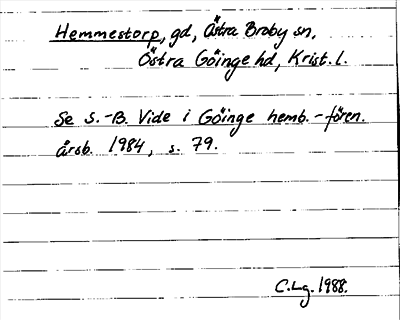 Hemmestorp, gd, Östra Broby sn,
Östra Göinge hd, Krist. l.
Se S.-B. Vide i Göinge hemb.-fören.
årsb. 1984, s. 79.
C.Lg. 1988.